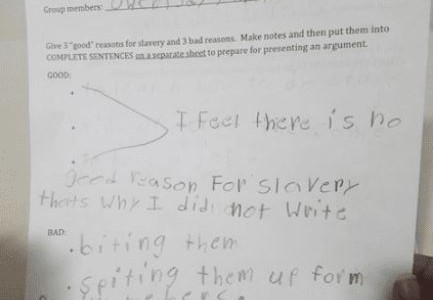 Group members:
Give 3 "good" reasons for slavery and 3 bad reasons. Make notes and then put them into
COMPLETE SENTENCES on a separate sheet to prepare for presenting an argument.
GOOD:
I feel there is no
good reason For slavery
thats why I did not Write
BAD:
biting them
spiting them up form